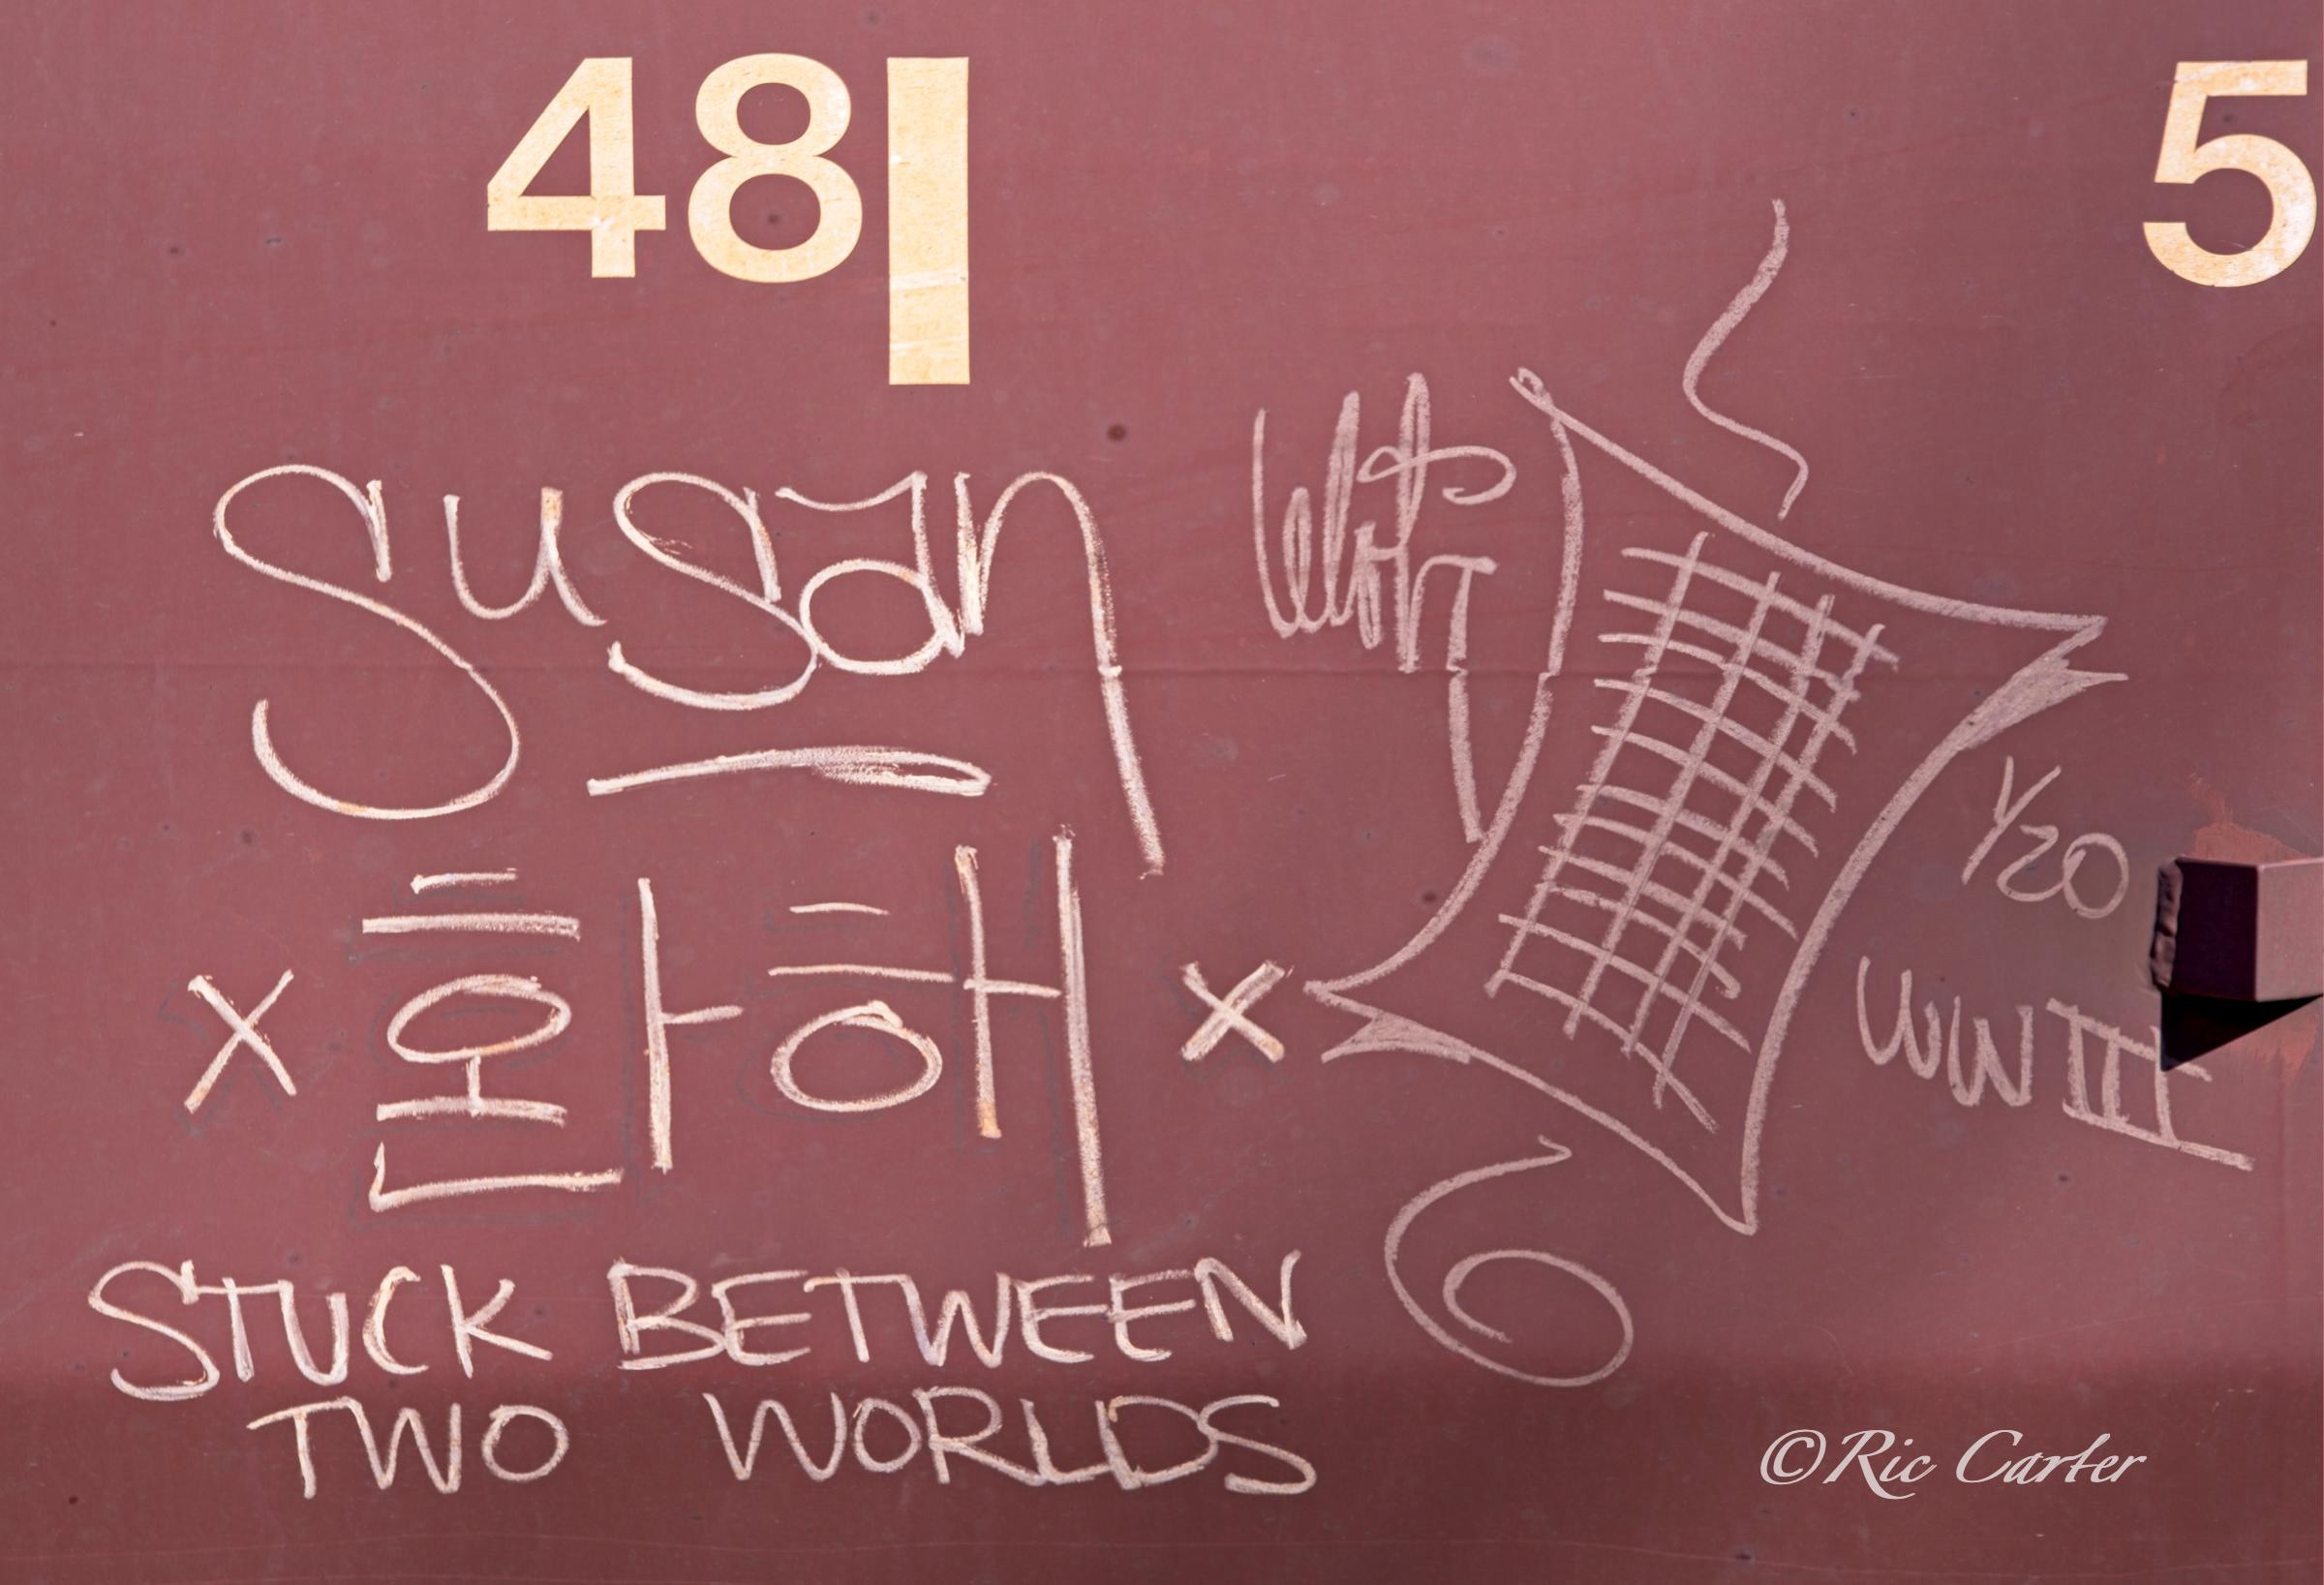 48
5
Susan
x 환해 x
STUCK BETWEEN
TWO WORLDS
1/20
WW III
©Ric Carter